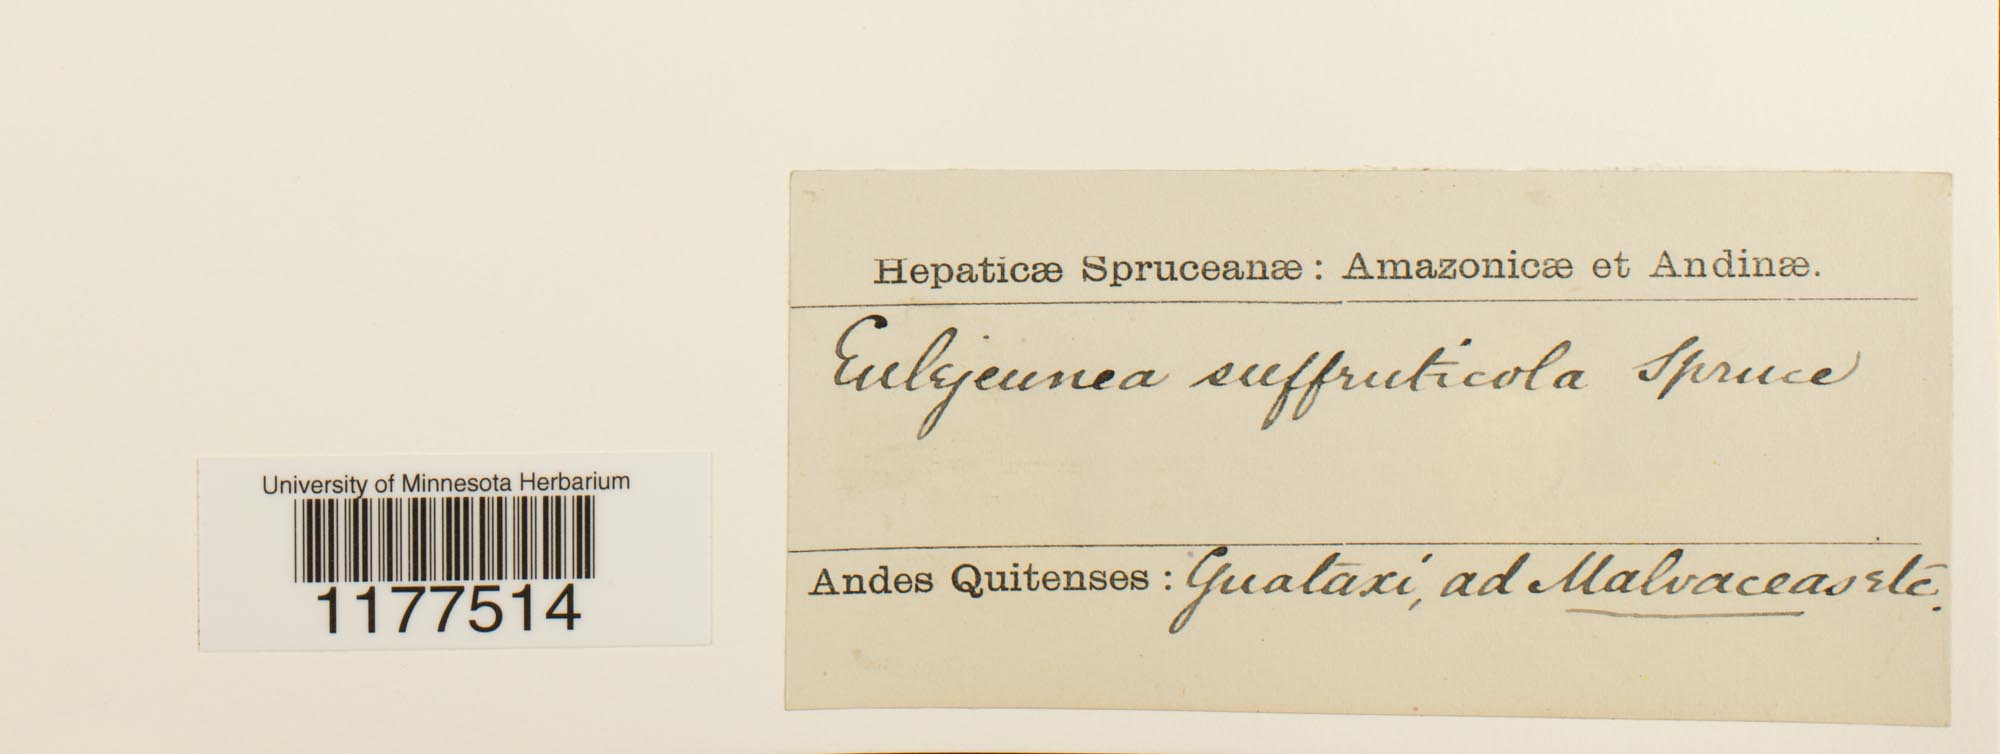 Hepaticæ Spruceanæ: Amazonicæ et Andinæ.
Eulejeunea suffruticola Spruce
University of Minnesota Herbarium
1177514
Andes Quitenses: Guataxi, ad Malvaceas etc.